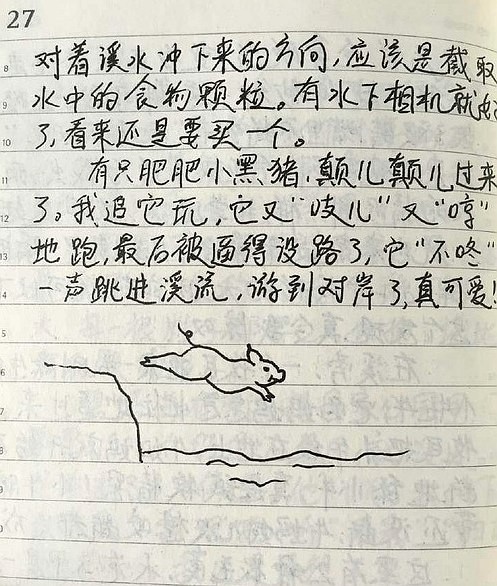 27
对着溪水冲下来的方向,应该是截取
水中的食物颗粒。有水下相机就好
了,看来还是要买一个。
有只肥肥小黑猪,颠儿颠儿过来
了。我追它玩,它又“吱儿”又“哼”
地跑,最后被逼得没路了,它“不咚”
一声跳进溪流,游到对岸了,真可爱!